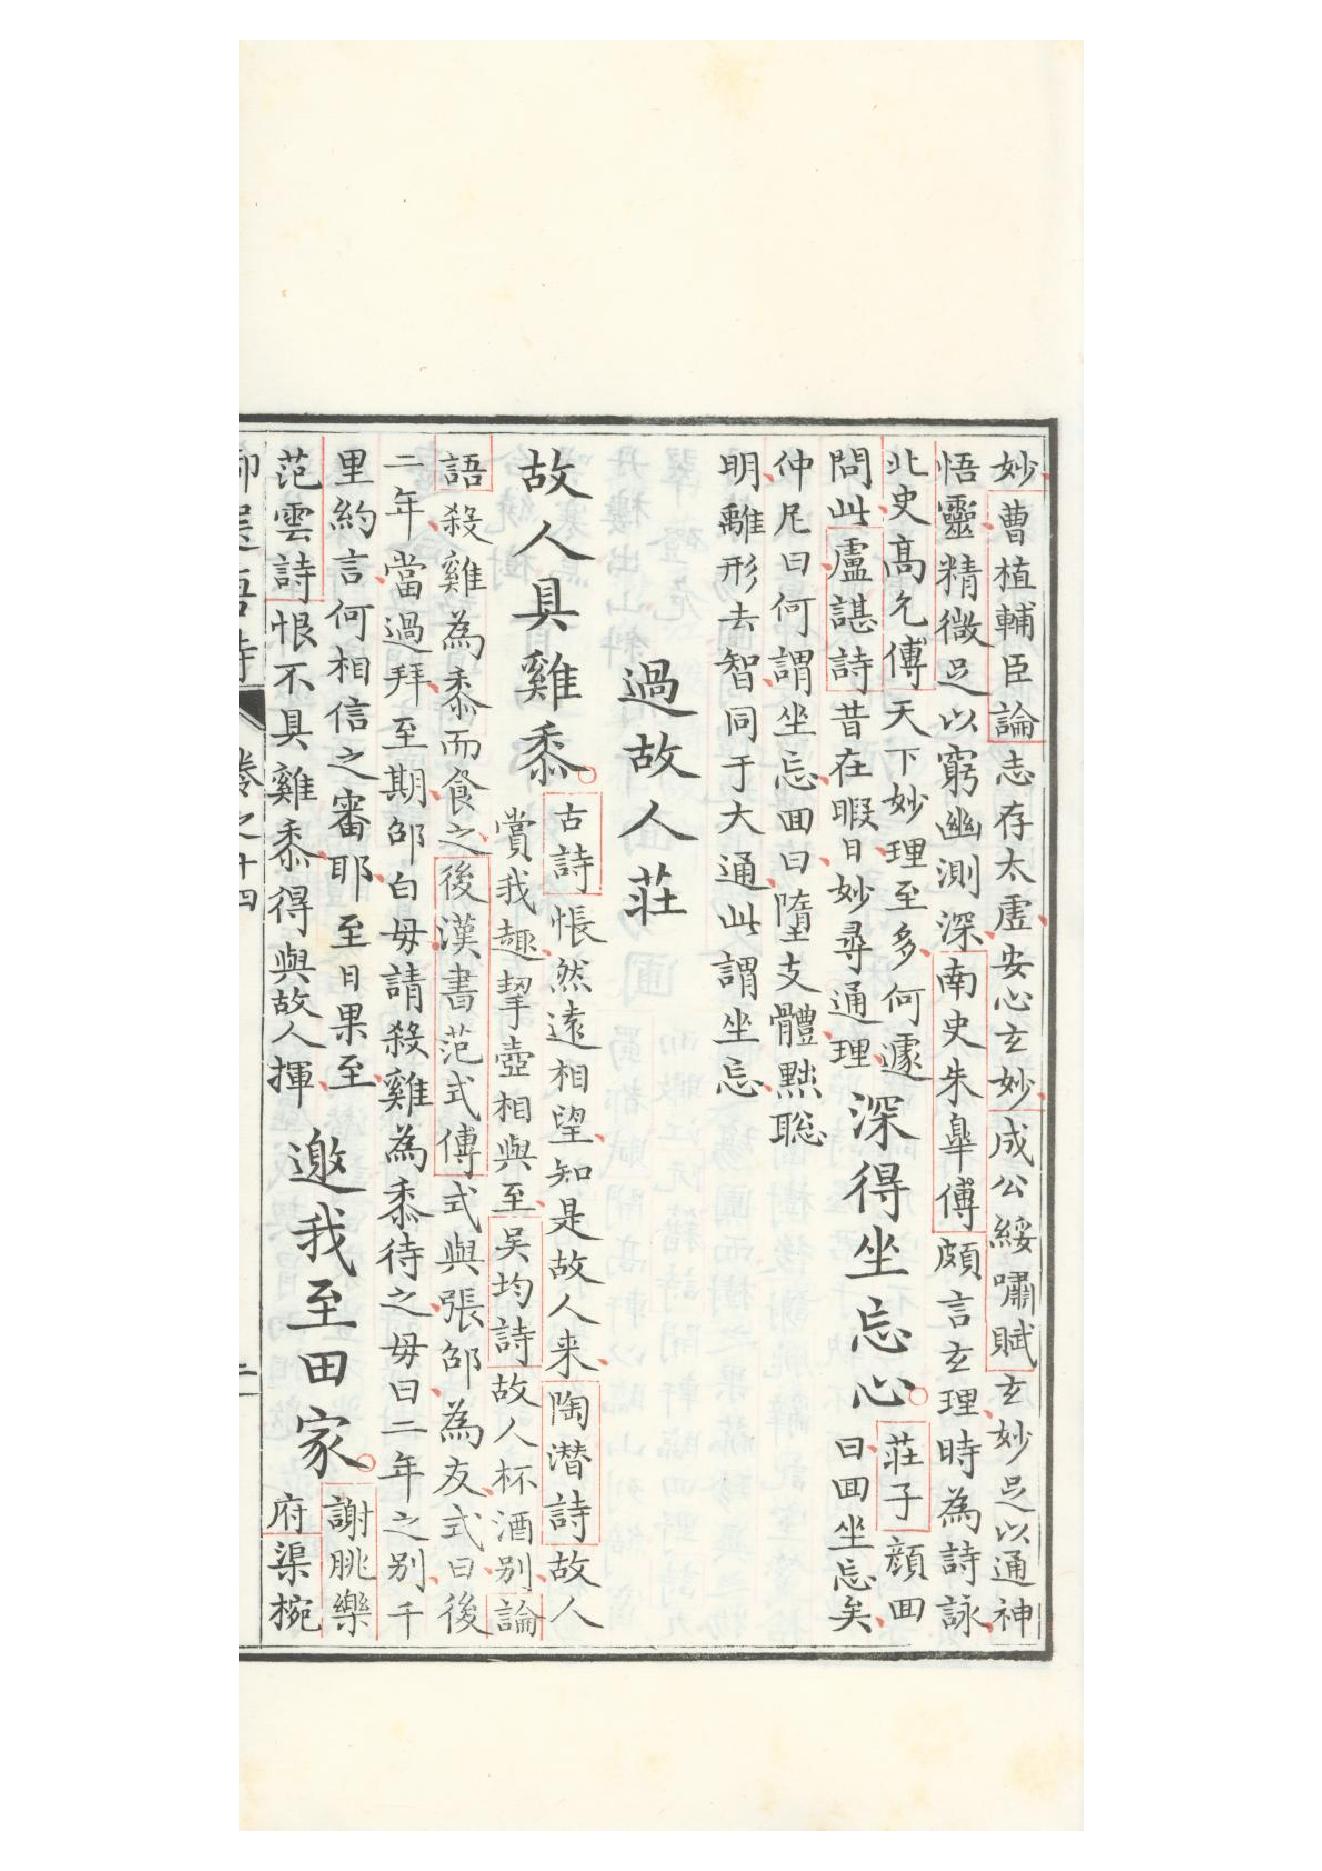 妙曹植輔臣論志存太虛安心玄妙成公綏嘯賦玄妙足以通神
悟靈精微足以窮幽測深南史朱臯傳頗言玄理時為詩詠
北史高允傳天下妙理至多何遽
問此盧諶詩昔在暇日妙尋通理
深得坐忘心
莊子顏回
曰回坐忘矣
仲尼曰何謂坐忘回曰墮支體黜聰
明離形去智同于大通此謂坐忘
過故人莊
故人具雞黍
古詩悵然遠相望知是故人来陶潛詩故人
賞我趣挈壺相與至吳均詩故人杯酒别論
語殺雞為黍而食之後漢書范式傳式與張邵為友式曰後
二年當過拜至期邵白毋請殺雞為黍待之毋曰二年之别千
里約言何相信之審耶至日果至
范雲詩恨不具雞黍得與故人揮
邀我至田家
謝朓樂
府渠椀
卷之十四